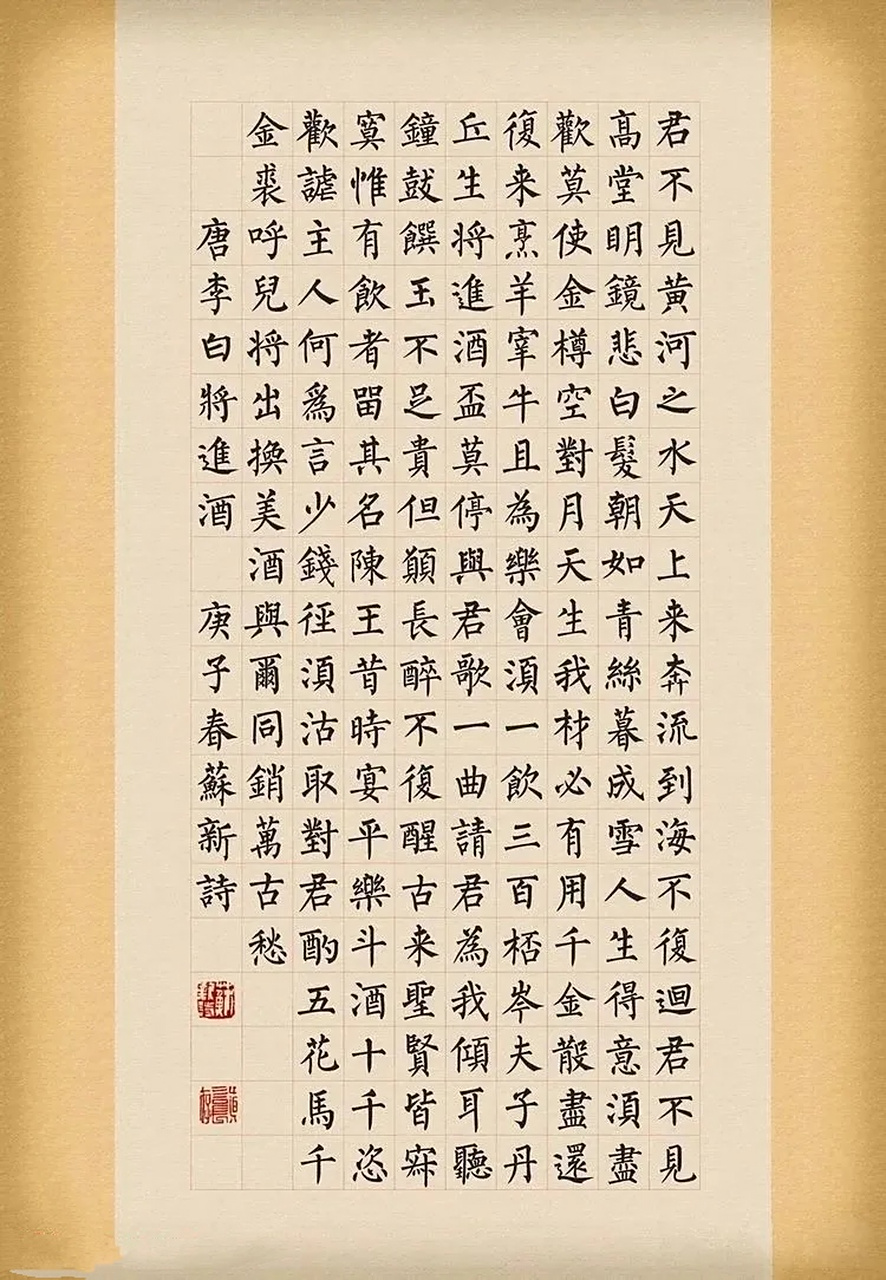 君不見黃河之水天上来奔流到海不復迴君不見
高堂明鏡悲白髮朝如青絲暮成雪人生得意須盡
歡莫使金樽空對月天生我材必有用千金散盡還
復来烹羊宰牛且為樂會須一飲三百桮岑夫子丹
丘生将進酒盃莫停與君歌一曲請君為我傾耳聽
鐘鼓饌玉不足貴但願長醉不復醒古来聖賢皆寂
寞惟有飲者留其名陳王昔時宴平樂斗酒十千恣
歡謔主人何為言少錢徑須沽取對君酌五花馬千
金裘呼兒将出換美酒與爾同銷萬古愁
唐李白將進酒 庚子春蘇新詩